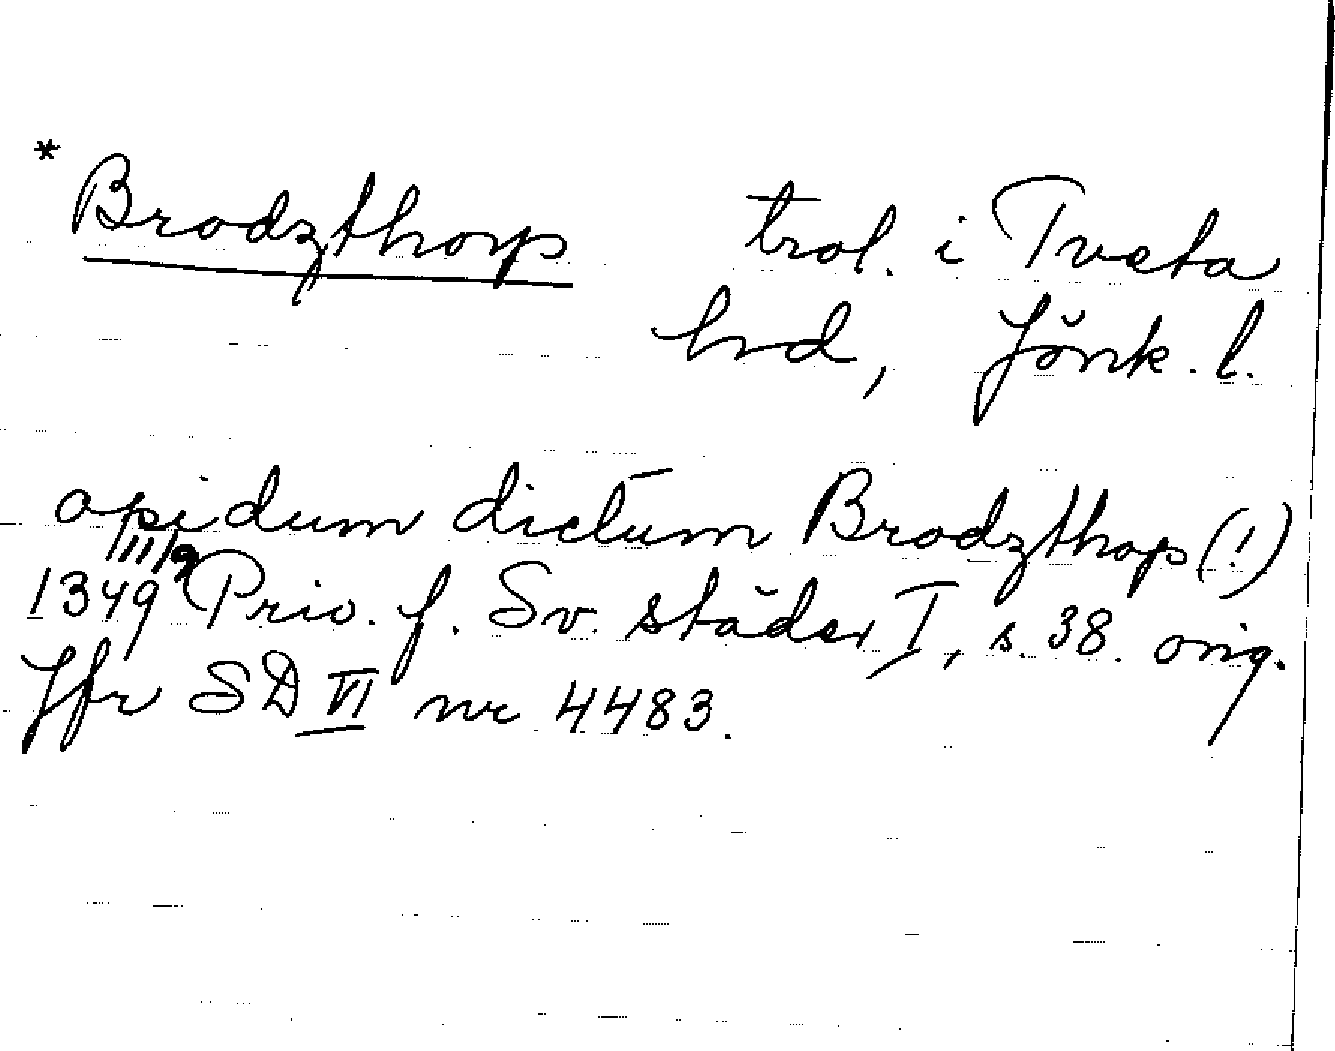 * Brodzthorp trol. i Tveta
hrd, Jönk. l.
opidum dictum Brodzthop (!)
1349 9/III Priv. f. Sv. städer I, s. 38. orig.
Jfr SD VI nr 4483.